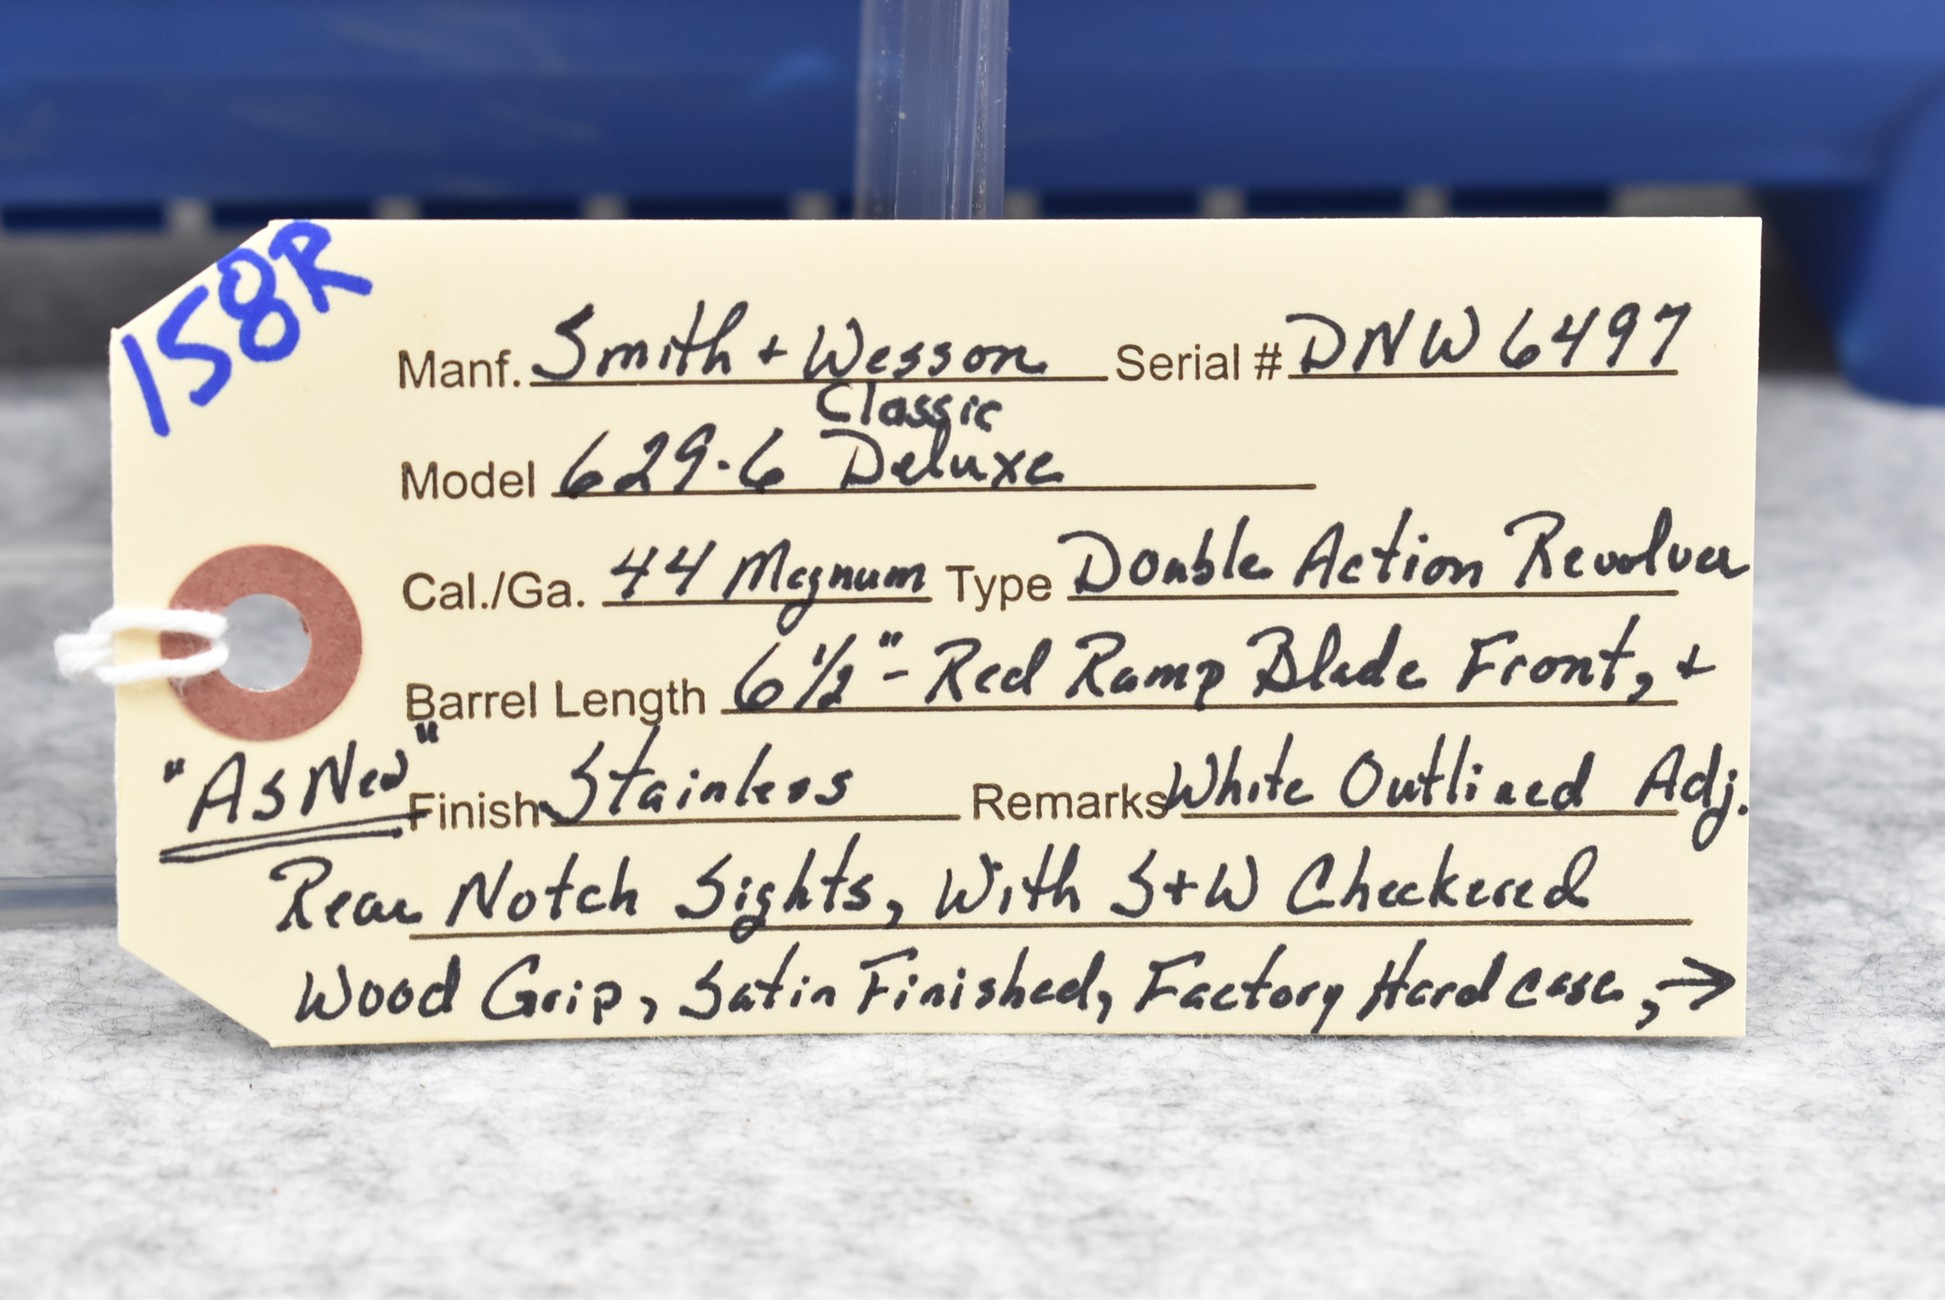 158R
Manf. Smith + Wesson Serial # DNW6497
Classic
Model 629-6 Deluxe
Cal./Ga. 44 Magnum Type Double Action Revolver
Barrel Length 6 1/2" - Red Ramp Blade Front, +
"As New"
Finish Stainless Remarks White Outlined Adj.
Rear Notch Sights, With S+W Checkered
Wood Grip, Satin Finished, Factory Hard case, →